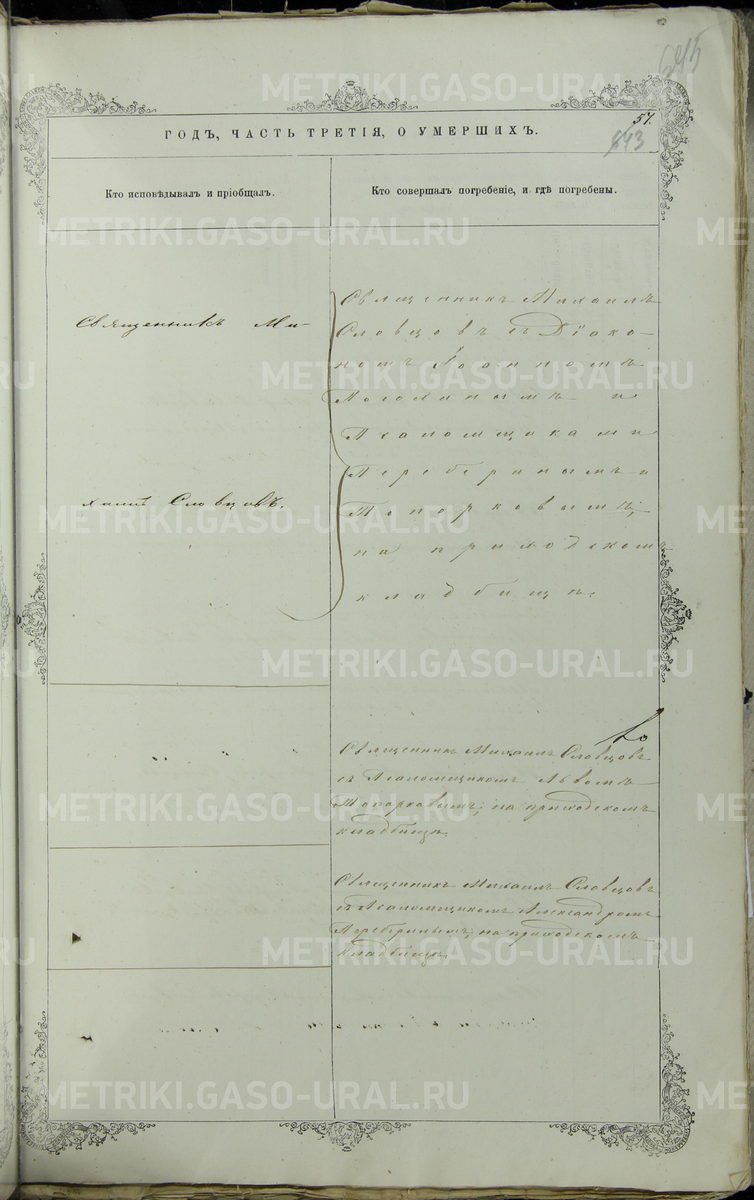 57.
ГОДЪ, ЧАСТЬ ТРЕТІЯ, О УМЕРШИХЪ.
Кто исповѣдывалъ и пріобщалъ.
Кто совершалъ погребеніе, и гдѣ погребены.
Священникъ Ми-
хаилъ Словцовъ.
Священникъ Михаилъ
Словцовъ съ Діако-
номъ Іоанномъ
и
Псаломщиками
и
Топорковымъ,
на приходскомъ
кладбищѣ.
Священникъ Михаилъ Словцовъ
съ Псаломщикомъ Львомъ
Топорковымъ, на приходскомъ
кладбищѣ.
Священникъ Михаилъ Словцовъ
съ Псаломщикомъ Александромъ
на приходскомъ
кладбищѣ.
METRIKI.GASO-URAL.RU